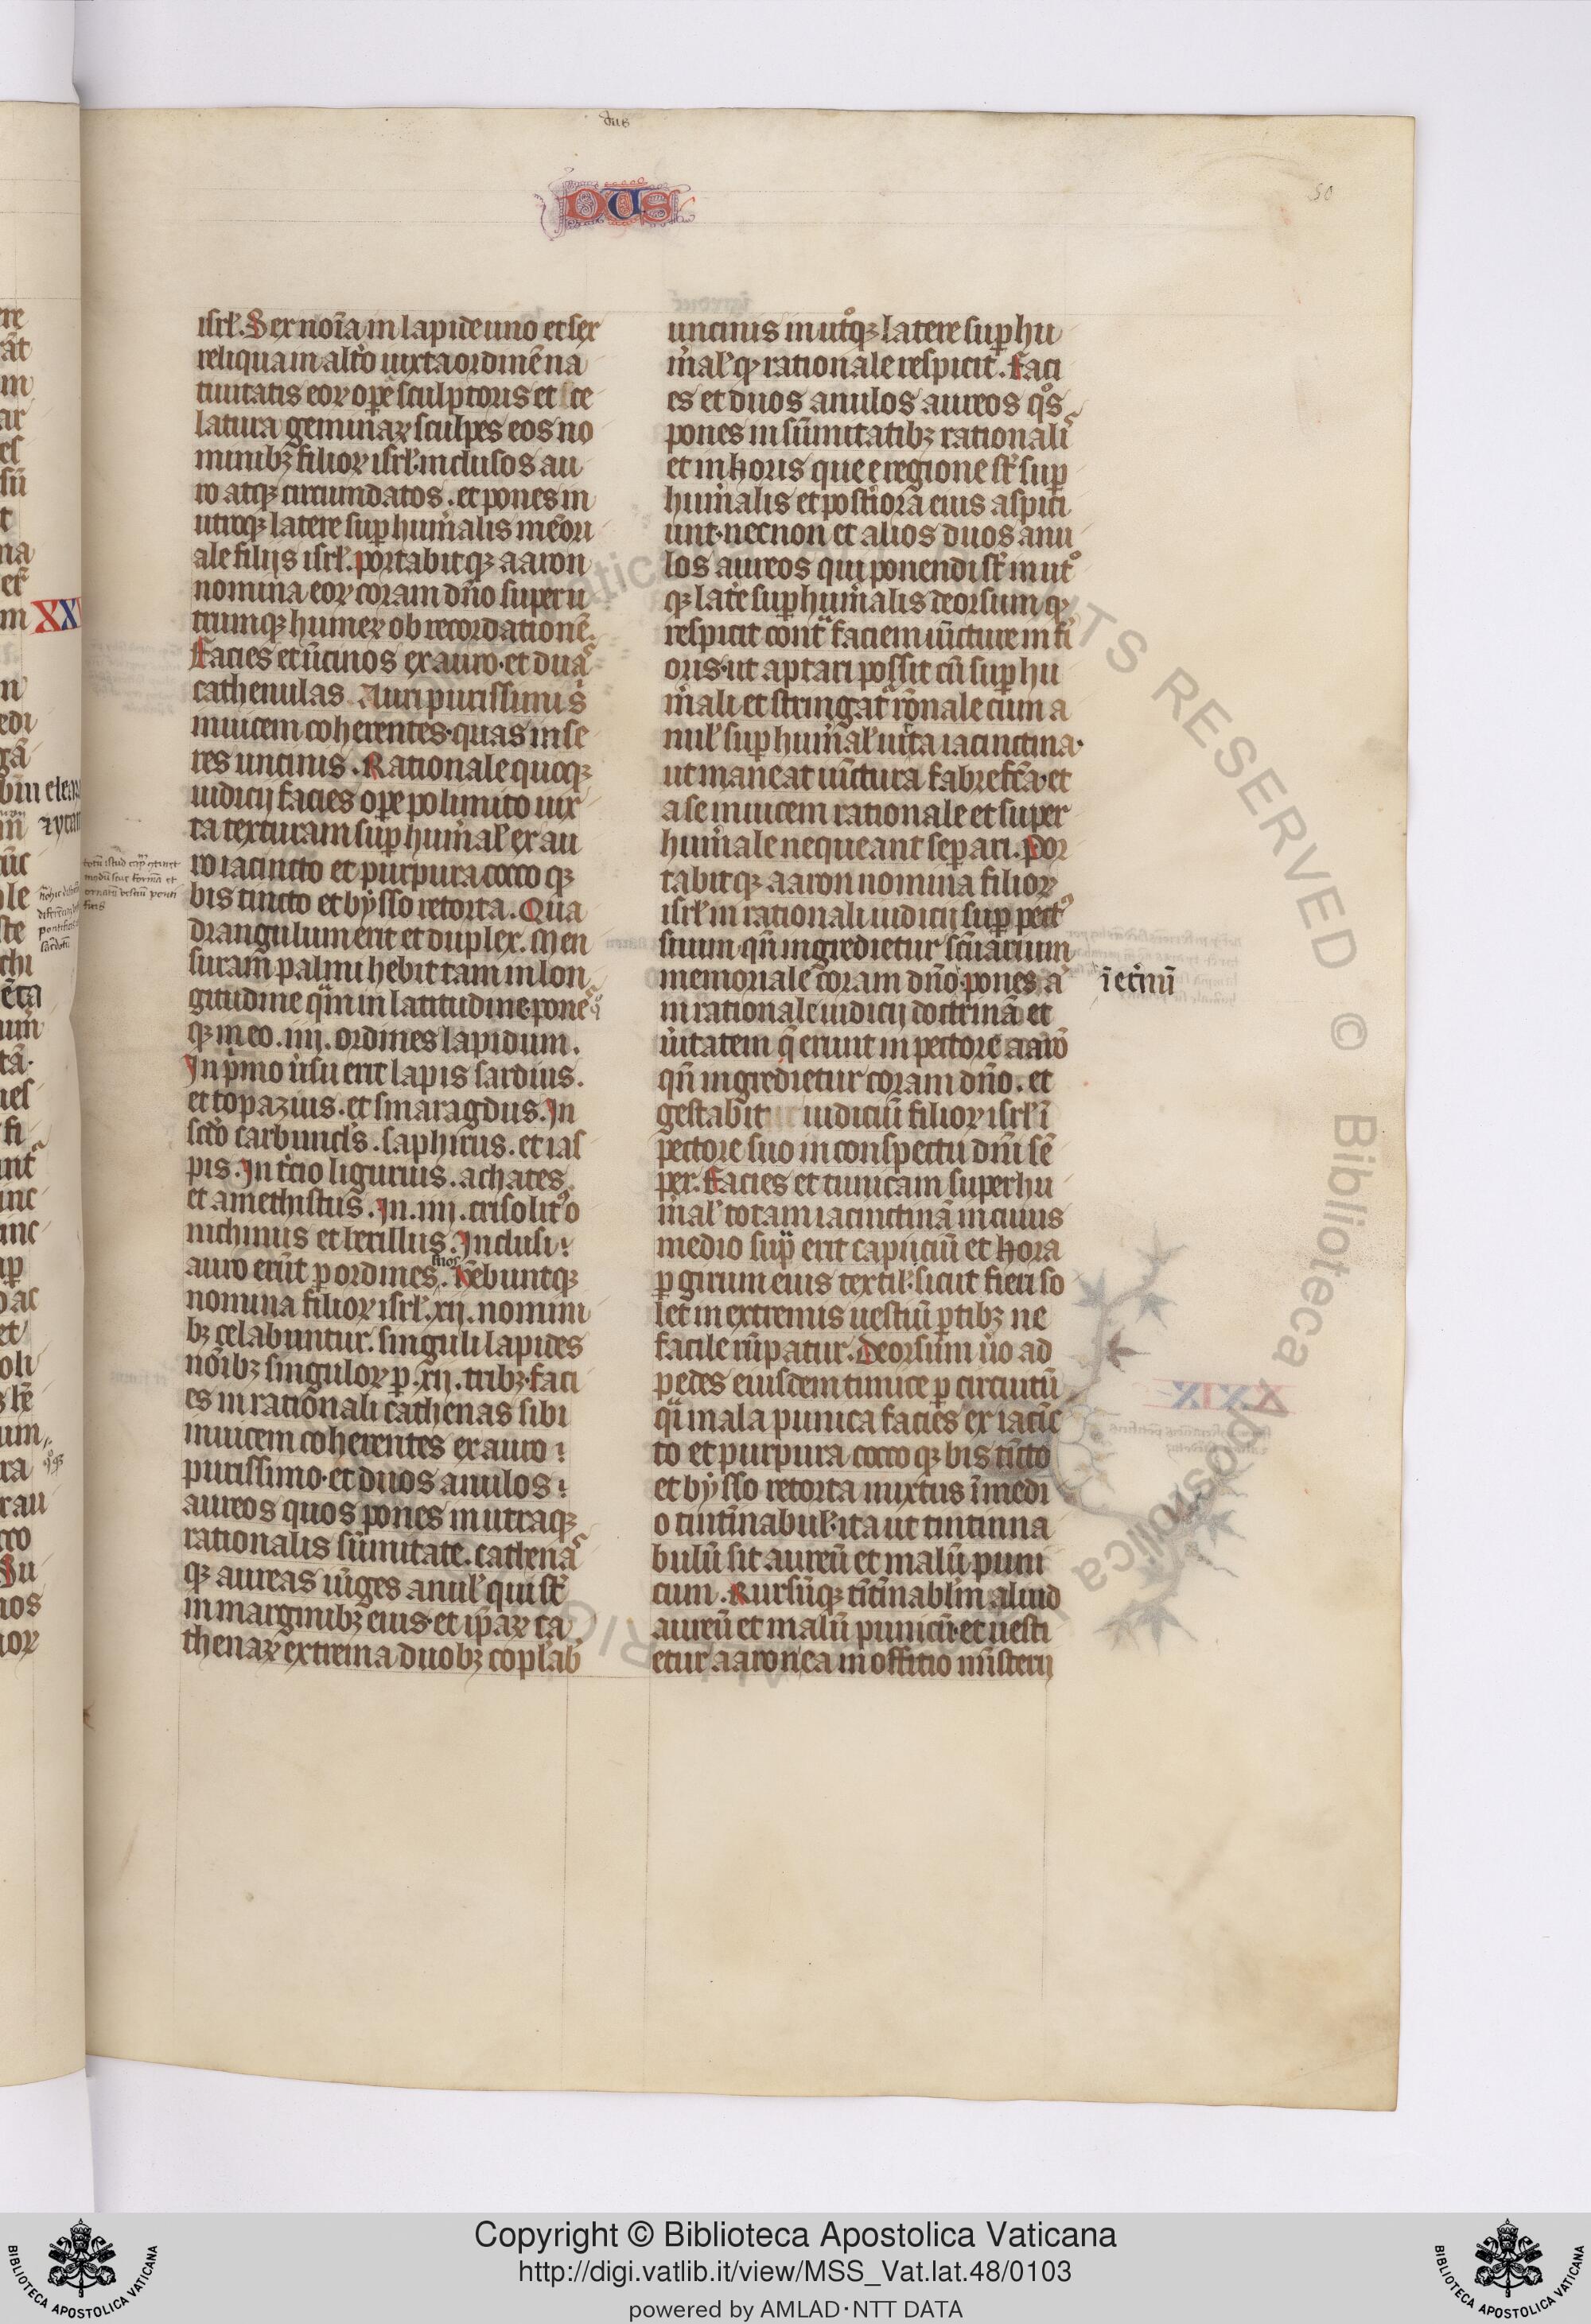 dus
DUS
50
isrl̃. Sex noı̃a in lapide uno et sex
reliqua in alt̾o iuxta ordinē na
tiuitatis eoꝝ oꝑe sculptoris et ce
latura gemmaꝝ sculpes eos no
minibꝫ filioꝝ isrl̃. inclusos au
ro atqꝫ circumdatos. et pones in
utroqꝫ latere suꝑhum̾alis mēori
ale filiis isrl̃. portabitqꝫ aaron
nomina eoꝝ coram dño super u
trumqꝫ humeꝝ ob recordationē.
Facies et ūcinos ex auro. et duas
cathenulas Auri purissimi s̾
inuicem coherentes. quas inse
res uncinis. Rationale quoqꝫ
iudicij facies oꝑe polimito iux
ta texturam suꝑhum̾al̃ ex au
ro iacincto et purpura coccoqꝫ
bis tincto et bysso retorta. Qua
drangulum erit et duplex. Men
suram palmi hēbit tam in lon
gitudine qᵃm in latitudine. pones
qꝫ in eo .iiij. ordines lapidum.
In pͥmo ũsu erit lapis sardius.
et topazius. et smaragdus. In
scd̾o carbuncl̾s. saphirus. et ias
pis. In t̾cio ligurius. achates.
et amethistus. In .iiij. crisolit᷒ o
nichinus et berillus. Inclusi
auro erūt ꝑ ordines suos. Hēbuntqꝫ
nomina filioꝝ isrl̃. xij. nomini
bꝫ celabuntur. singuli lapides
noı̃bꝫ singuloꝝ ꝑ .xij. tribꝫ. faci
es in rationali cathenas sibi
inuicem coherentes ex auro
purissimo. et duos anulos
aureos quos pones in utraqꝫ
rationalis sūmitate. cathenas
qꝫ aureas iūges anul̃ qui st̃
in marginibꝫ eius. et ip̃aꝝ ca
thenaꝝ extrema duobꝫ copl̾ab̾
uncinis in ut°qꝫ latere suꝑhu
m̾al̃ qꝫ rationale respicit. Faci
es et duos anulos aureos q°s
pones in sūmitatibꝫ rationalis
et in horis que e regione st̃ suꝑ
hum̾alis et post̾iora eius aspici
unt. necnon et alios duos anu
los aureos qui ponendi st̃ in ut°
qꝫ lat̾e suꝑhum̾alis deorsum qꝫ
respicit contᵃ faciem iūcture inf̾i
oris. ut aptari possit cū suꝑhu
m̾ali et stringat̾ rōnale cum a
nul̃ suꝑhum̾al̃ uitta iacinctina.
ut maneat iūctura fabrefc̄a. et
a se inuicem rationale et super
hum̾ale nequeant separi. Por
tabitqꝫ aaron nomina filioꝝ
isrl̃ in rationali iudicij suꝑ pect᷒
suum qn̄ ingredietur sc̄uarium
memoriale coram dño. pones a̾
in rationale iudicij doctrinā et
ũitatem q̄ erunt in pectore aarō
qn̄ ingredietur coram dño. et
gestabit iudiciū filioꝝ isrl̃ ı̃
pectore suo in conspectu dñi sē
per. Facies et tunicam superhu
m̾al̃ totam iacinctinā in cuius
medio supᵃ erit capiciū et hora
ꝑ girum eius textil̃. sicut fieri so
let in extremis uestiū ꝑtibꝫ ne
facile rūpatur. Deorsum ũo ad
pedes eiusdem tunice ꝑ circuitū
qͣi mala punica facies ex iacīc
to et purpura coccoqꝫ bis tı̃cto
et bysso retorta mixtus ı̃ medi
o tintı̃nabul̃. ita ut tintinna
bulū sit aureū et malū puni
cum. Rursūqꝫ tı̃tı̃nabl̃m aliud
aureū et malū punicū. et uesti
etur aaron ea in officio mı̃sterij
ı̃ et̾nū
Copyright © Biblioteca Apostolica Vaticana
http://digi.vatlib.it/view/MSS_Vat.lat.48/0103
powered by AMLAD·NTT DATA
BIBLIOTECA APOSTOLICA VATICANA
BIBLIOTECA APOSTOLICA VATICANA